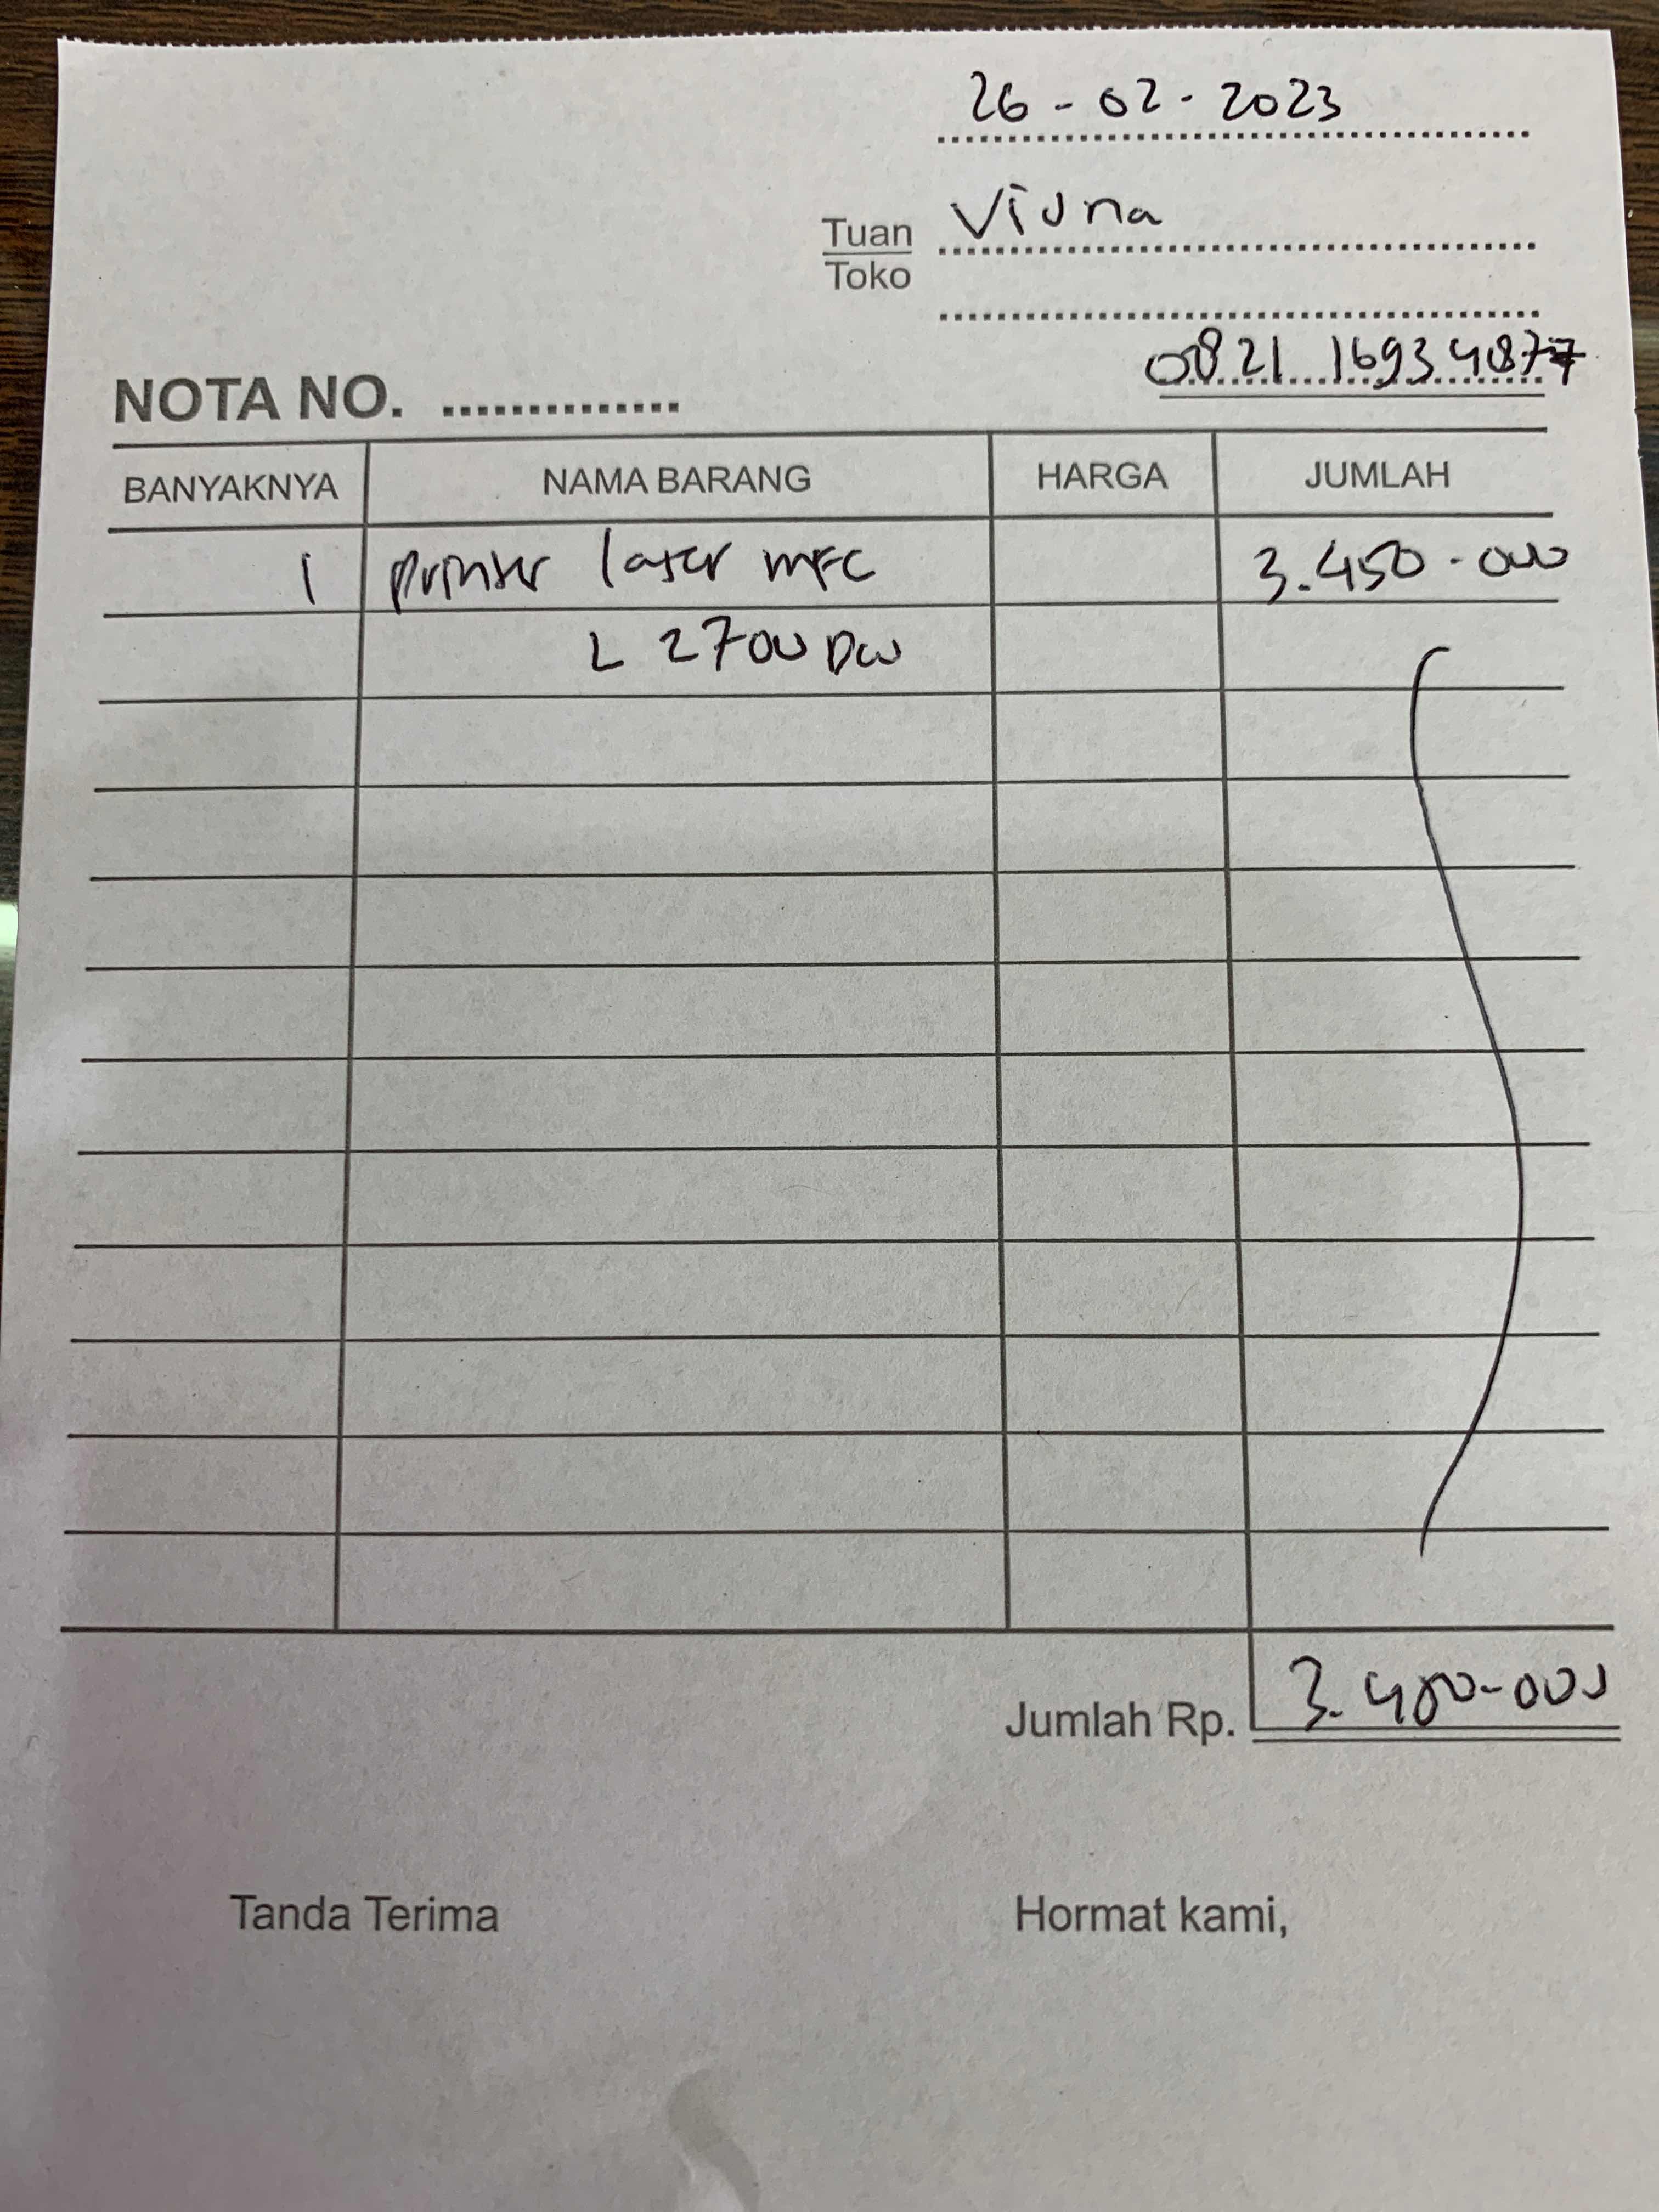 26 - 02 - 2023
Tuan Viona
Toko
NOTA NO. ..............
BANYAKNYA NAMA BARANG HARGA JUMLAH
1 printer laser MFC 3.450.000
L 2700 DW
Jumlah Rp. 3.450.000
Tanda Terima Hormat kami,